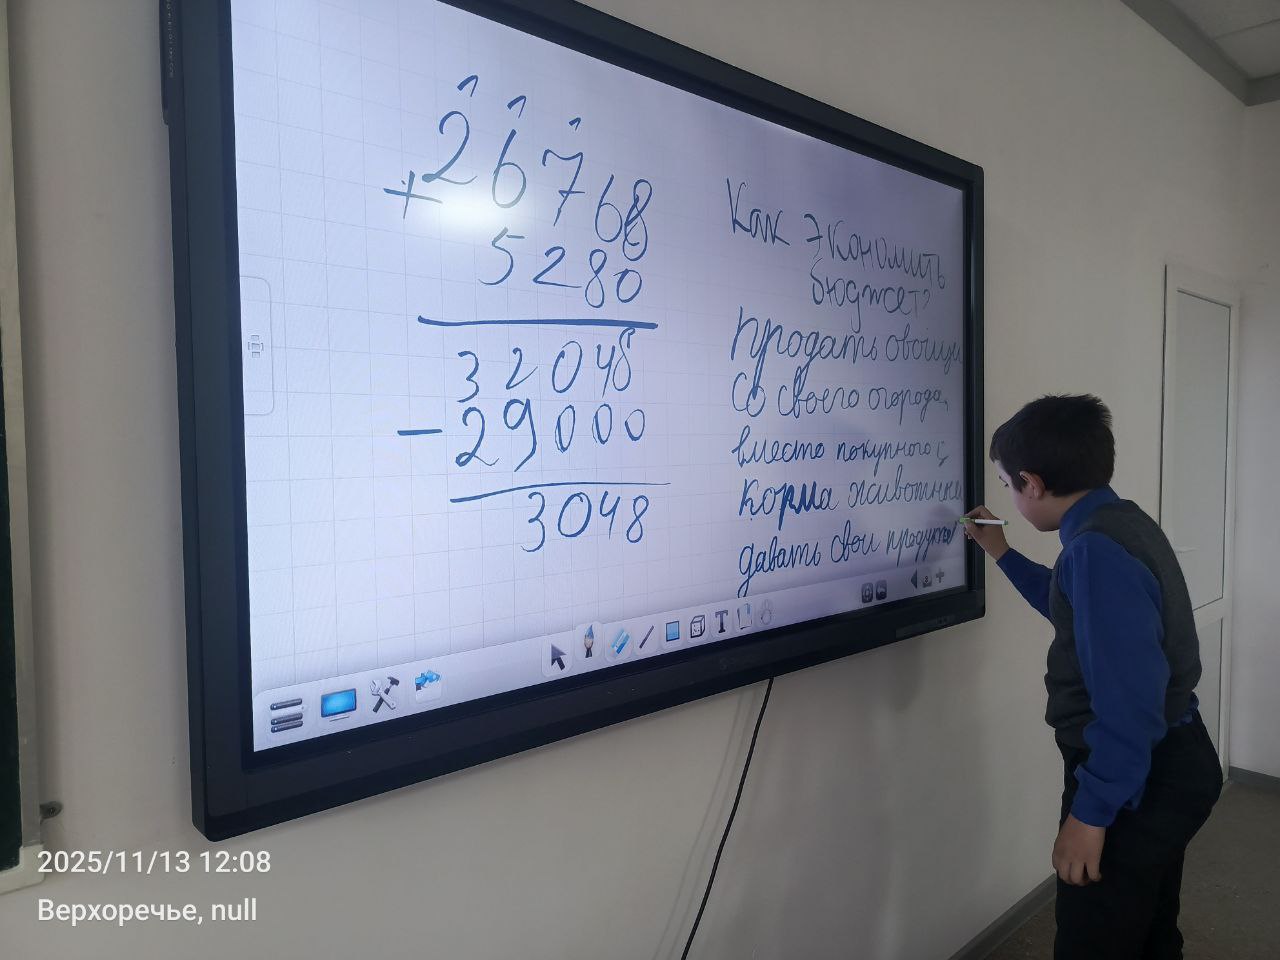 26768
+
5280
32048
- 29000
3048
Как экономить
бюджет?
продать овощи
со своего огорода,
вместо покупного
корма животным
давать свои продукты
T
2025/11/13 12:08
Верхоречье, null